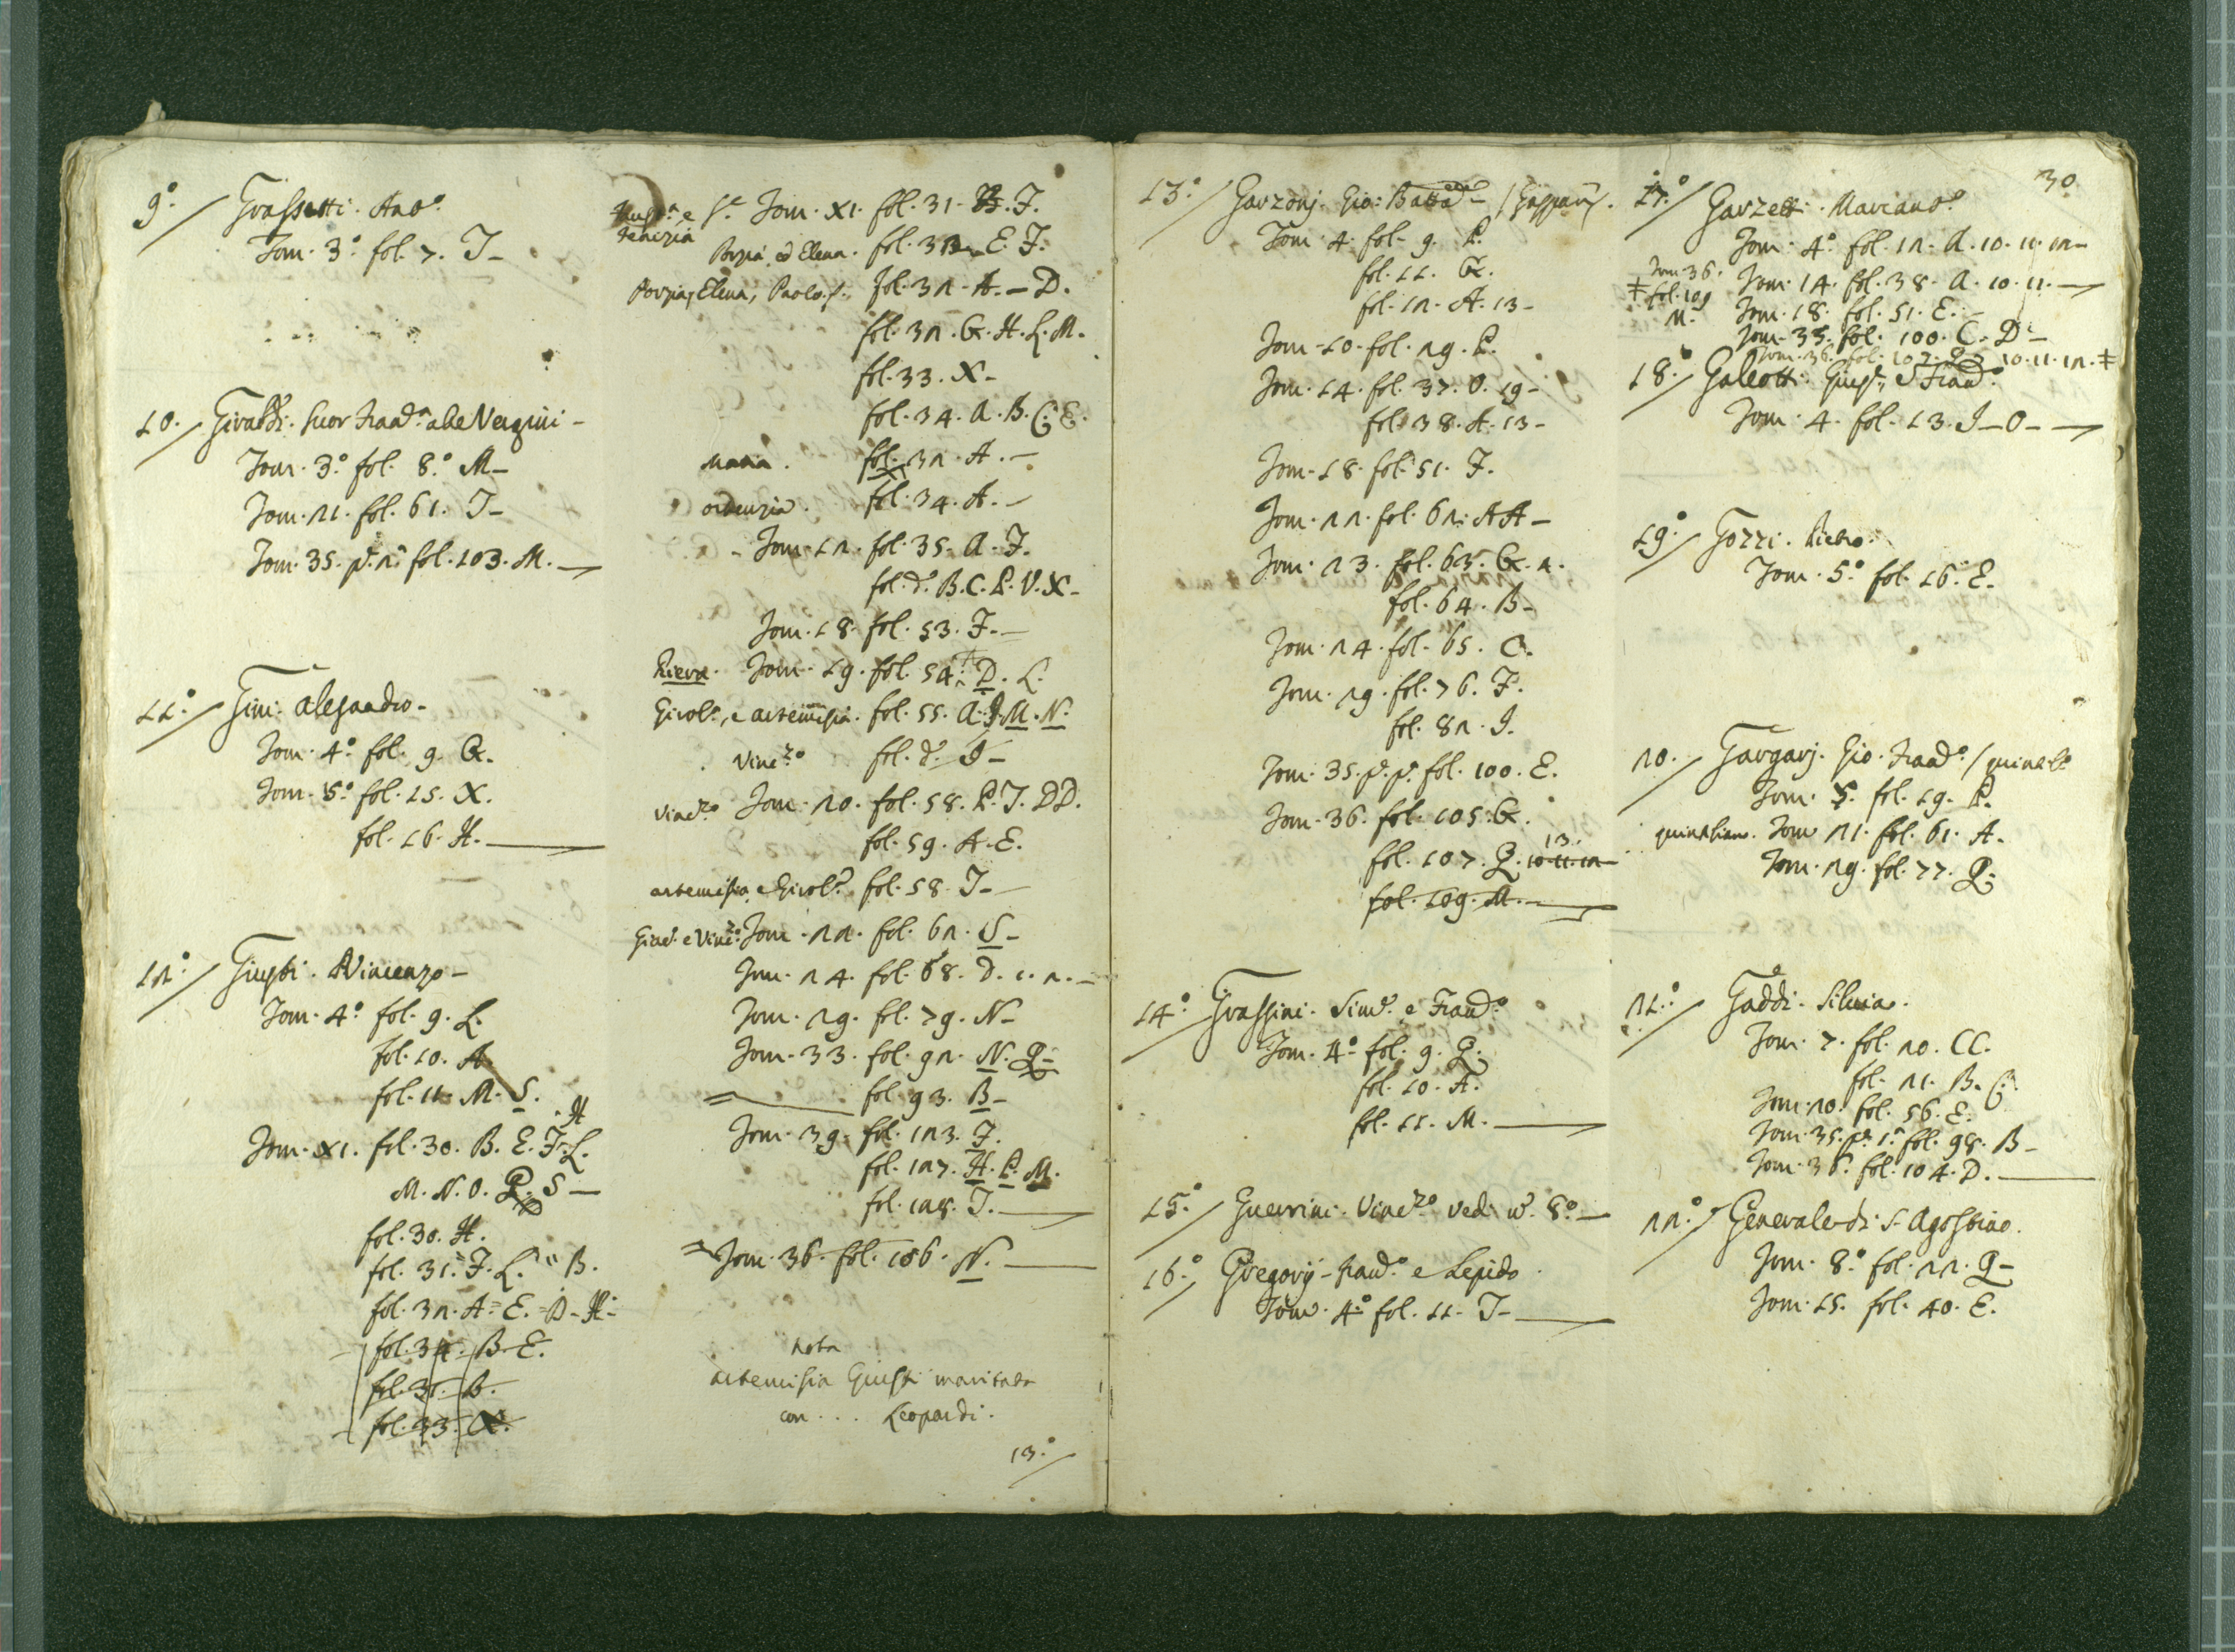 9.º Grassetti. Antº.
Tom. 3.º fol. 7. T-
10. Giraldi. Suor Fran.ª abe Vergini-
Tom. 3.º fol. 8.º M-
Tom. 21. fol. 61. T-
Tom. 35. p. 2.ª fol. 103. M.
11.º Gini. Alesandro-
Tom. 4.º fol. 9. G.
Tom. 5.º fol. 15. X.
fol. 16. H.
12.º Giusti. Vincenzo-
Tom. 4.º fol. 9. L.
fol. 10. A
fol. 11. M. S.
Tom. XI. fol. 30. B. E. F. L. H
M. N. O. Q. S-
fol. 30. H.
fol. 31. F. L. B.
fol. 32. A. E. D. H-
fol. 34. B. E.
fol. 35. B.
fol. 33. X.
Tenezia e S.e Tom. XI. fol. 31. F.
Porzia, ed Elena. fol. 32. E. F.
Porzia, Elena, Paolo. fol. 32. A.-D.
fol. 32. G. H. L. M.
fol. 33. X-
fol. 34. A. B. C. E.
Maria. fol. 32. A.-
ortenzia. fol. 34. A.-
Tom. 12. fol. 35. A. F.
fol. dº. B. C. P. V. X-
Tom. 18. fol. 53. F.-
Piera. Tom. 19. fol. 54. D. L.
Girolª., e artemisia. fol. 55. A. I. M. N.
Vinc.zo fol. dº I-
Vinc.zo Tom. 20. fol. 58. P. T. DD.
fol. 59. A. E.
artemisia, e Girolª. fol. 58. T-
Giud. e Vinc.zo Tom. 22. fol. 62. S-
Tom. 24. fol. 68. D. 1. 2.-
Tom. 29. fol. 79. N-
Tom. 33. fol. 92. N. Q-
fol. 93. B-
Tom. 39. fol. 123. F.
fol. 127. H. P. M.
fol. 128. T.
Tom. 36. fol. 106. N.
Nota
artemisia Giusti maritata
con . . . Leopardi.
13.º
30
13.º Garzonj. Gio: Batta- / Gaspary.
Tom. 4. fol. 9. P.
fol. 11. G.
fol. 12. A. 13-
Tom. 10. fol. 29. P.
Tom. 14. fol. 37. O. 19-
fol. 38. A. 13-
Tom. 18. fol. 51. F.
Tom. 22. fol. 62. AA-
Tom. 23. fol. 63. G. 2.
fol. 64. B-
Tom. 24. fol. 65. C.
Tom. 29. fol. 76. F.
fol. 82. I.
Tom. 35. p. p. fol. 100. E.
Tom. 36. fol. 105. G.
fol. 107. Q. 10. 11. 12 13.
fol. 109. M.
14.º Grassini. Simº. e Franº
Tom. 4.º fol. 9. Q.
fol. 10. A.
fol. 11. M.
15.º Guerrini. Vinc.zo vedi nº. 8.º-
16.º Gregorij- Franº. e Lepido
Tom. 4.º fol. 11. T-
17.º Garzetti. Marianoº
Tom. 4.º fol. 12. A. 10. 11. 12-
Tom. 14. fol. 38. A. 10. 11.
Tom. 18. fol. 51. E.
Tom. 35. fol. 100. C. D-
Tom. 36. fol. 107. Q. 10. 11. 12. ‡
‡ Tom. 36. fol. 109 M.
18. Galeotti. Giuspe., e Franº.
Tom. 4. fol. 13. I-O-
19.º Gozzi. Pietro.
Tom. 5.º fol. 16. E.
20. Gargarj. Gio. Franº. / quinale
Tom. 5. fol. 19. P.
quintiliano. Tom 21. fol. 61. A.
Tom. 29. fol. 77. Q.
21.º Gaddi. Silvia.
Tom. 7. fol. 20. CC.
fol. 21. B. C.
Tom. 20. fol. 56. E.
Tom. 35. p. 1.ª fol. 98. B-
Tom. 36. fol. 104. D.
22.º Generale di S. Agostino.
Tom. 8.º fol. 22. Q-
Tom. 15. fol. 40. E.